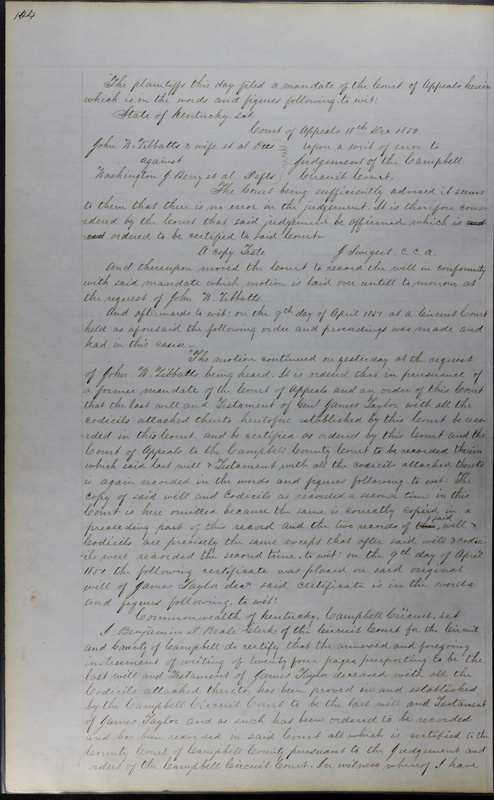 144
The plaintiffs this day filed a mandate of the Court of Appeals herein
which is in the words and figures following, to wit:
State of Kentucky, sct
Court of Appeals 18th Dec 1850
John W. Tibbatts & wife et al Pltfs upon a writ of error to
against Judgement of the Campbell
Washington J. Berry et al Defts Circuit Court.
The Court being sufficiently advised it seems
to them that there is no error in the judgement. It is therefore consi-
dered by the Court that said judgement be affirmed which is
ordered to be certified to said Court.
A copy Teste J Swigert C.C.A.
And thereupon moved the Court to record the will in conformity
with said mandate which motion is laid over untill to morrow at
the request of John W. Tibbatts.
And afterwards to wit: on the 9th day of April 1851 at a Circuit Court
held as aforesaid the following order and proceedings was made and
had in this cause.
"The motion continued on yesterday at the request
of John W. Tibbatts being heard. It is ordered that in pursuance of
a former mandate of the Court of Appeals and an order of this Court
that the last will and Testament of Genl James Taylor with all the
codicils attached thereto heretofore established by this Court be reco-
rded in this Court. and be certified as ordered by this Court and the
Court of Appeals to the Campbell County Court to be recorded therein
which said last will & Testament with all the codicils attached thereto
is again recorded in the words and figures following to wit: The
copy of said will and Codicils as recorded a second time in this
Court is here omitted because the same is correctly copied in a
preceeding part of this record and the two records of said will &
Codicils are precisely the same except that after said will & codic-
ils were recorded the second time, to wit: on the 9th day of April
1851 the following certificate was placed on said original
will of James Taylor decd said certificate is in the words
and figures following, to wit:
Commonwealth of Kentucky, Campbell Circuit, sct
I Benjamin D. Beale Clerk of the Circuit Court for the Circuit
and County of Campbell do certify that the annexed and foregoing
instrument of writing of twenty four pages, purporting to be the
last will and Testament of James Taylor deceased with all the
Codicils attached thereto, has been proved in and established
by the Campbell Circuit Court to be the last will and Testament
of James Taylor and as such has been ordered to be recorded
and has been recorded in said Court all which is certified to the
County Court of Campbell County pursuant to the Judgement and
orders of the Campbell Circuit Court. In witness whereof I have